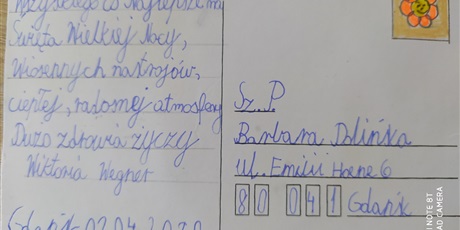 Wszystkiego co Najlepsze na
Święta Wielkiej Nocy,
Wiosennych nastrojów,
ciepłej, radosnej atmosfery
Dużo zdrowia życzy
Wiktoria Wegner
Gdańsk 02.04.2020
Sz. P
Barbara Dolińka
ul. Emilii Hoene 6
80 041 Gdańsk
MI NOTE 8T
AD CAMERA